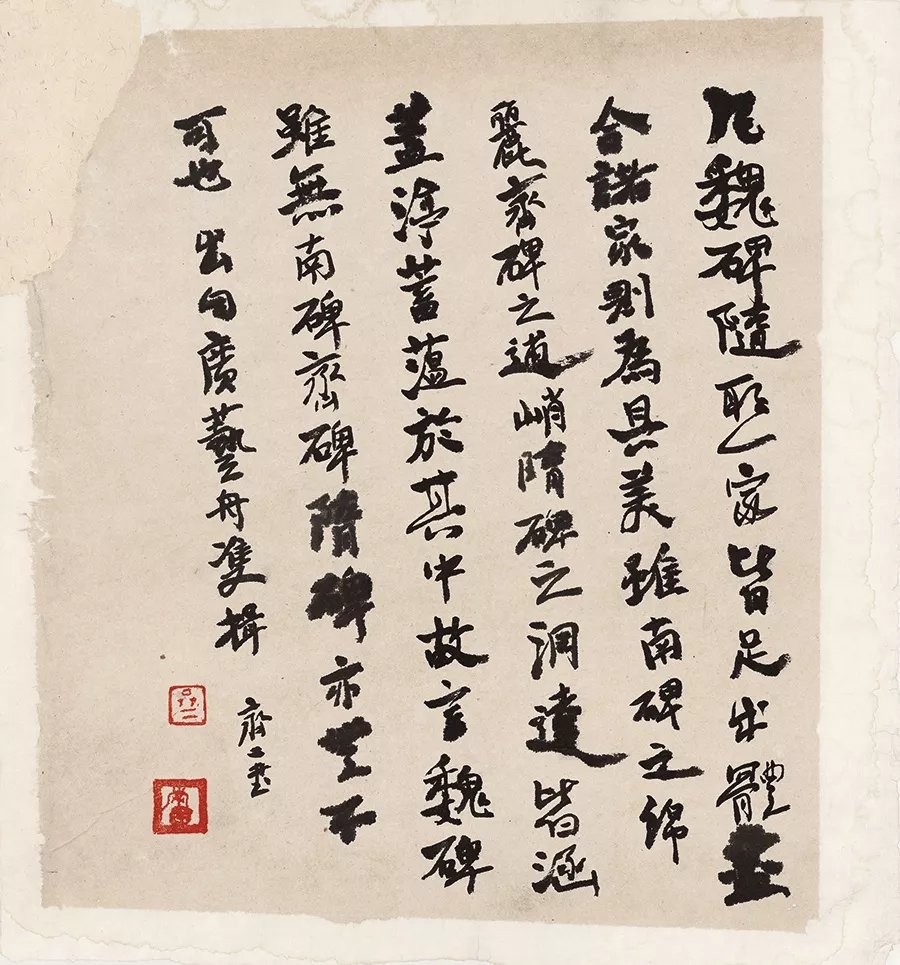 凡魏碑隨取一家皆足成體盡
合諸家則為具美雖南碑之綿
麗齊碑之逋峭隋碑之洞達皆涵
蓋渟蓄薀於其中故言魏碑
雖無南碑齊碑隋碑亦無不
可也 出自廣藝舟雙楫